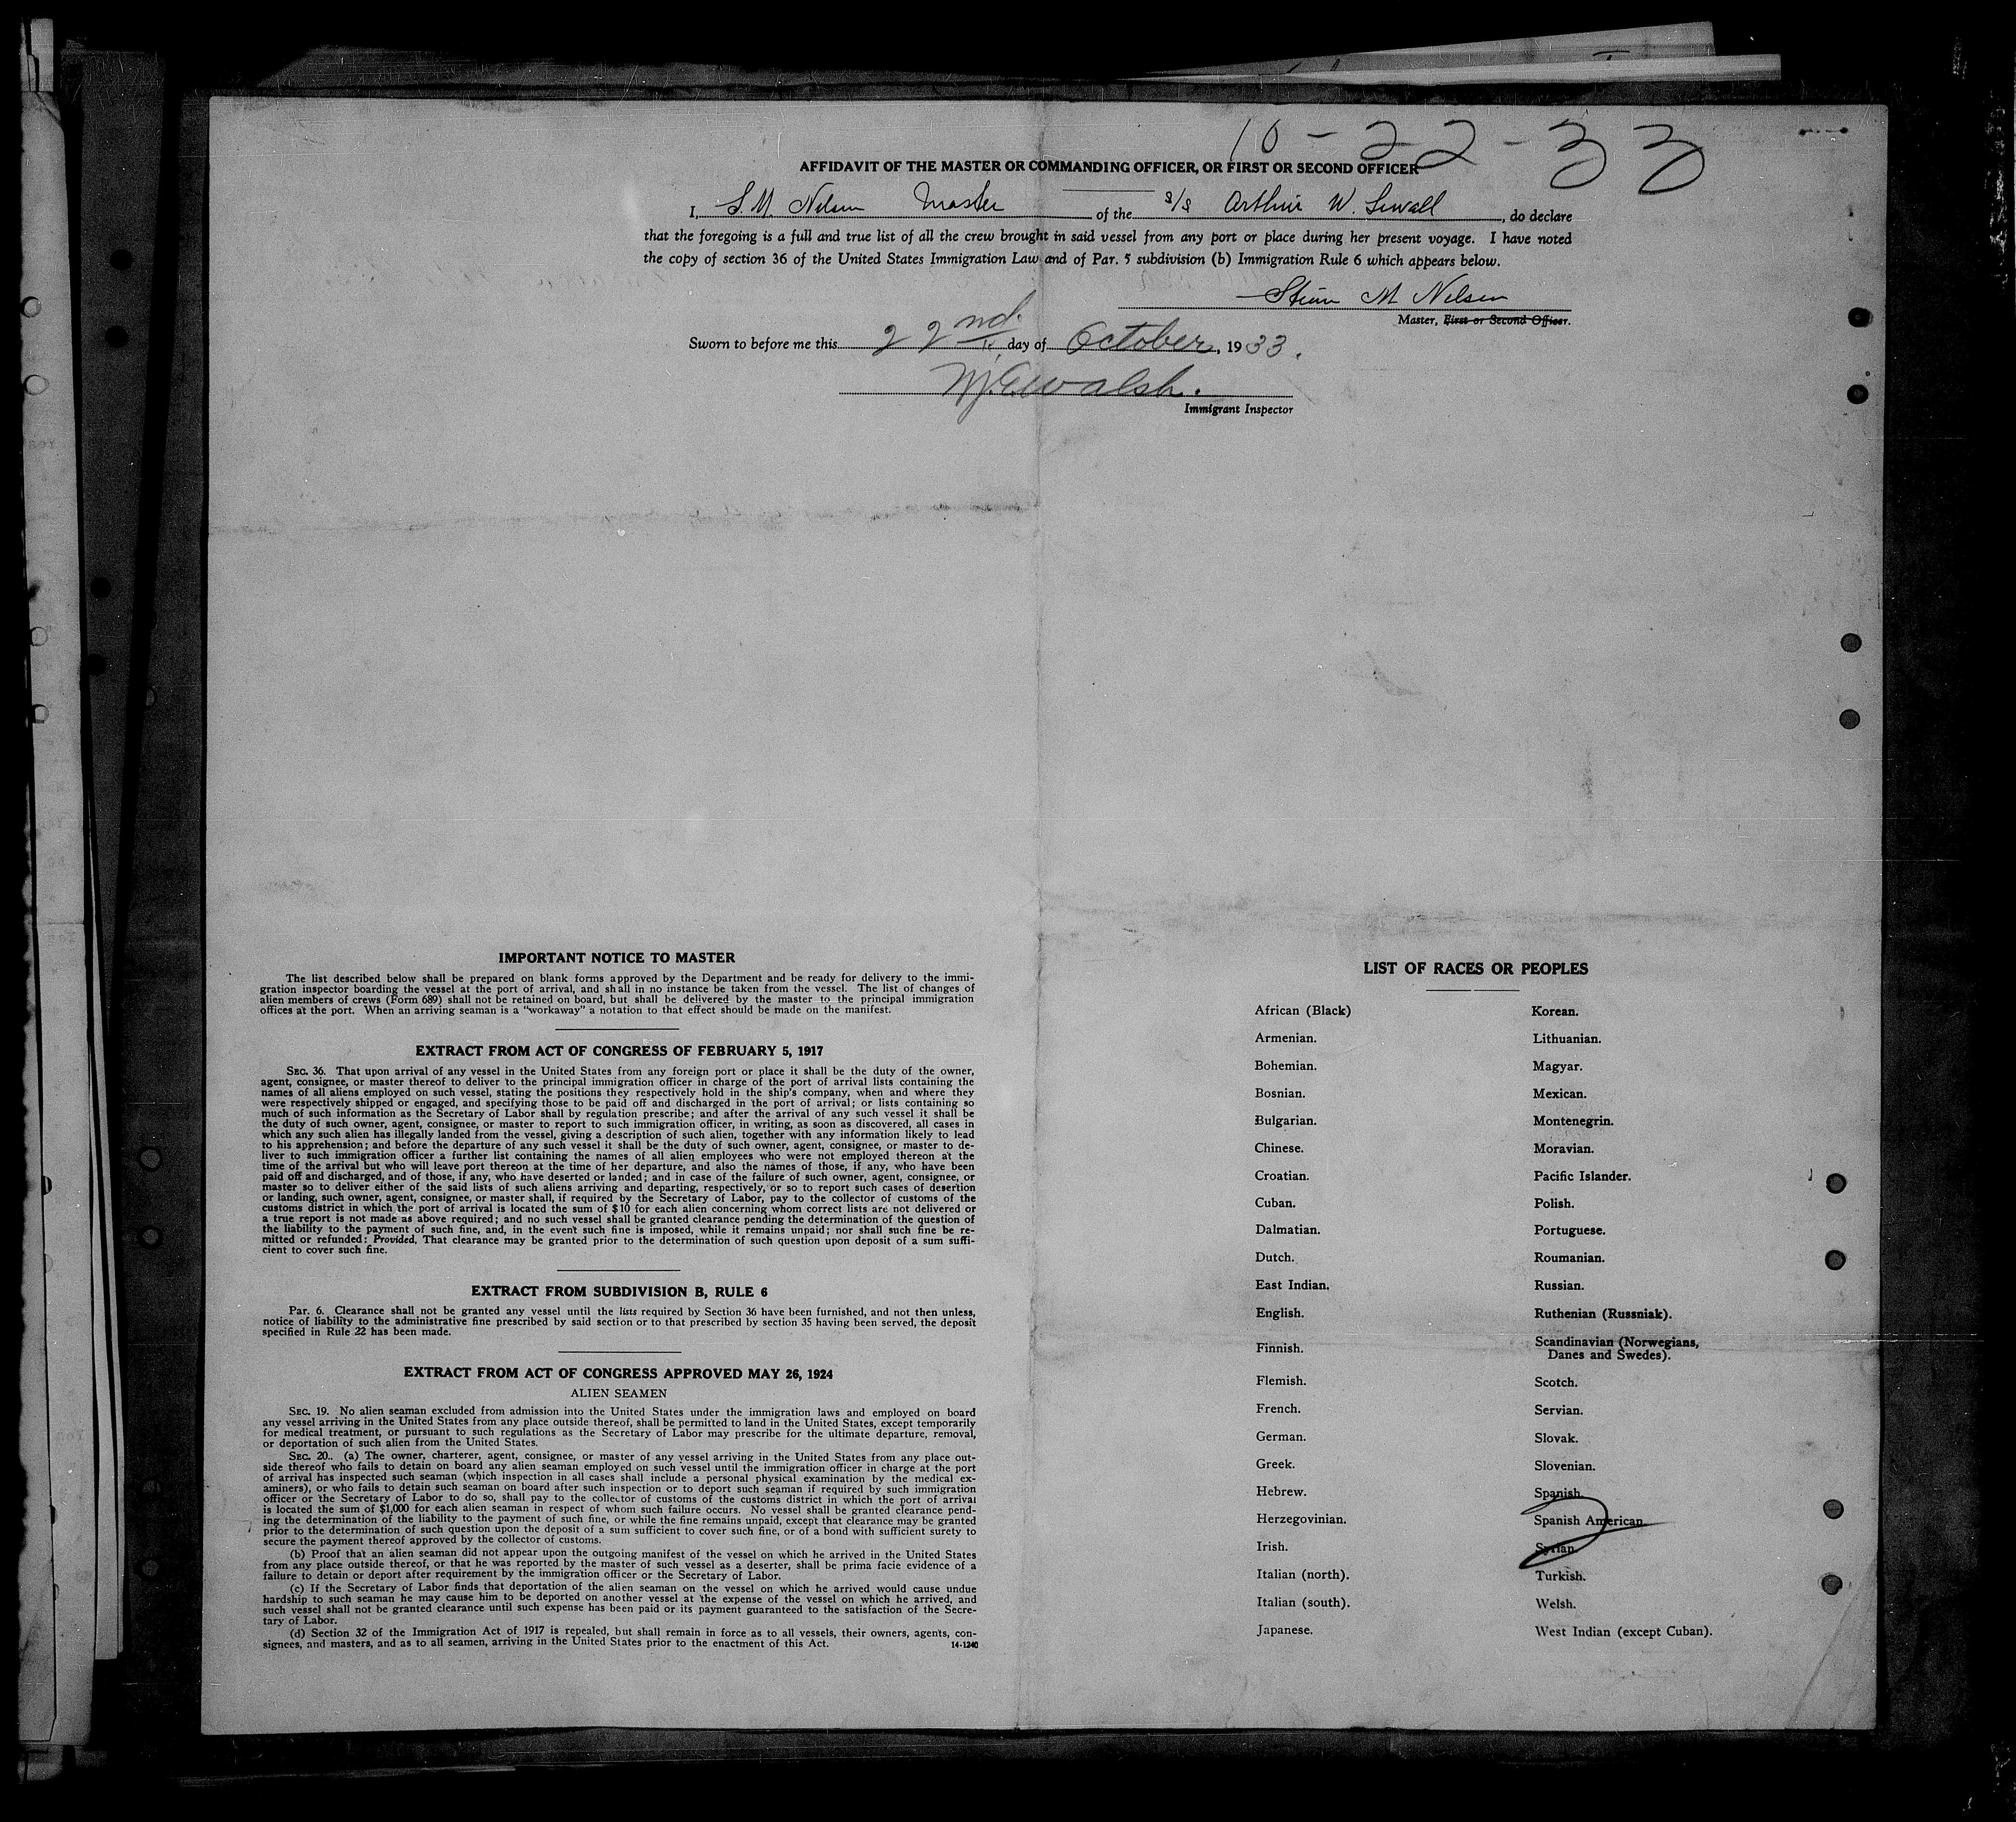 10-22-33
AFFIDAVIT OF THE MASTER OR COMMANDING OFFICER, OR FIRST OR SECOND OFFICER
I, S. M. Nelsen Master of the s/s Arthur W. Sewall, do declare
that the foregoing is a full and true list of all the crew brought in said vessel from any port or place during her present voyage. I have noted
the copy of section 36 of the United States Immigration Law and of Par. 5 subdivision (b) Immigration Rule 6 which appears below.
M Nelsen
Master, First or Second Officer.
Sworn to before me this 22nd day of October, 1933.
Walsh.
Immigrant Inspector
IMPORTANT NOTICE TO MASTER
The list described below shall be prepared on blank forms approved by the Department and be ready for delivery to the immi-
gration inspector boarding the vessel at the port of arrival, and shall in no instance be taken from the vessel. The list of changes of
alien members of crews (Form 689) shall not be retained on board, but shall be delivered by the master to the principal immigration
offices at the port. When an arriving seaman is a "workaway" a notation to that effect should be made on the manifest.
EXTRACT FROM ACT OF CONGRESS OF FEBRUARY 5, 1917
SEC. 36. That upon arrival of any vessel in the United States from any foreign port or place it shall be the duty of the owner,
agent, consignee, or master thereof to deliver to the principal immigration officer in charge of the port of arrival lists containing the
names of all aliens employed on such vessel, stating the positions they respectively hold in the ship's company, when and where they
were respectively shipped or engaged, and specifying those to be paid off and discharged in the port of arrival; or lists containing so
much of such information as the Secretary of Labor shall by regulation prescribe; and after the arrival of any such vessel it shall be
the duty of such owner, agent, consignee, or master to report to such immigration officer, in writing, as soon as discovered, all cases in
which any such alien has illegally landed from the vessel, giving a description of such alien, together with any information likely to lead
to his apprehension; and before the departure of any such vessel it shall be the duty of such owner, agent, consignee, or master to de-
liver to such immigration officer a further list containing the names of all alien employees who were not employed thereon at the
time of the arrival but who will leave port thereon at the time of her departure, and also the names of those, if any, who have been
paid off and discharged, and of those, if any, who have deserted or landed; and in case of the failure of such owner, agent, consignee, or
master so to deliver either of the said lists of such aliens arriving and departing, respectively, or so to report such cases of desertion
or landing, such owner, agent, consignee, or master shall, if required by the Secretary of Labor, pay to the collector of customs of the
customs district in which the port of arrival is located the sum of $10 for each alien concerning whom correct lists are not delivered or
a true report is not made as above required; and no such vessel shall be granted clearance pending the determination of the question of
the liability to the payment of such fine, and, in the event such fine is imposed, while it remains unpaid; nor shall such fine be re-
mitted or refunded: Provided, That clearance may be granted prior to the determination of such question upon deposit of a sum suffi-
cient to cover such fine.
EXTRACT FROM SUBDIVISION B, RULE 6
Par. 6. Clearance shall not be granted any vessel until the lists required by Section 36 have been furnished, and not then unless,
notice of liability to the administrative fine prescribed by said section or to that prescribed by section 35 having been served, the deposit
specified in Rule 22 has been made.
EXTRACT FROM ACT OF CONGRESS APPROVED MAY 26, 1924
ALIEN SEAMEN
SEC. 19. No alien seaman excluded from admission into the United States under the immigration laws and employed on board
any vessel arriving in the United States from any place outside thereof, shall be permitted to land in the United States, except temporarily
for medical treatment, or pursuant to such regulations as the Secretary of Labor may prescribe for the ultimate departure, removal,
or deportation of such alien from the United States.
SEC. 20.. (a) The owner, charterer, agent, consignee, or master of any vessel arriving in the United States from any place out-
side thereof who fails to detain on board any alien seaman employed on such vessel until the immigration officer in charge at the port
of arrival has inspected such seaman (which inspection in all cases shall include a personal physical examination by the medical ex-
aminers), or who fails to detain such seaman on board after such inspection or to deport such seaman if required by such immigration
officer or the Secretary of Labor to do so, shall pay to the collector of customs of the customs district in which the port of arrival
is located the sum of $1,000 for each alien seaman in respect of whom such failure occurs. No vessel shall be granted clearance pend-
ing the determination of the liability to the payment of such fine, or while the fine remains unpaid, except that clearance may be granted
prior to the determination of such question upon the deposit of a sum sufficient to cover such fine, or of a bond with sufficient surety to
secure the payment thereof approved by the collector of customs.
(b) Proof that an alien seaman did not appear upon the outgoing manifest of the vessel on which he arrived in the United States
from any place outside thereof, or that he was reported by the master of such vessel as a deserter, shall be prima facie evidence of a
failure to detain or deport after requirement by the immigration officer or the Secretary of Labor.
(c) If the Secretary of Labor finds that deportation of the alien seaman on the vessel on which he arrived would cause undue
hardship to such seaman he may cause him to be deported on another vessel at the expense of the vessel on which he arrived, and
such vessel shall not be granted clearance until such expense has been paid or its payment guaranteed to the satisfaction of the Secre-
tary of Labor.
(d) Section 32 of the Immigration Act of 1917 is repealed, but shall remain in force as to all vessels, their owners, agents, con-
signees, and masters, and as to all seamen, arriving in the United States prior to the enactment of this Act.
14-1240
LIST OF RACES OR PEOPLES
African (Black)
Armenian.
Bohemian.
Bosnian.
Bulgarian.
Chinese.
Croatian.
Cuban.
Dalmatian.
Dutch.
East Indian.
English.
Finnish.
Flemish.
French.
German.
Greek.
Hebrew.
Herzegovinian.
Irish.
Italian (north).
Italian (south).
Japanese.
Korean.
Lithuanian.
Magyar.
Mexican.
Montenegrin.
Moravian.
Pacific Islander.
Polish.
Portuguese.
Roumanian.
Russian.
Ruthenian (Russniak).
Scandinavian (Norwegians,
Danes and Swedes).
Scotch.
Servian.
Slovak.
Slovenian.
Spanish.
Spanish American.
Syrian.
Turkish.
Welsh.
West Indian (except Cuban).